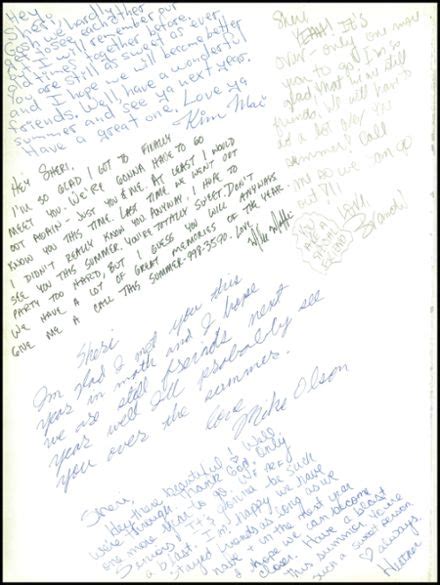 Hey
Sheri,
Gosh we hardly
get to see each other
But I will remember our
old times together before
You are still as sweet as ever
and I hope we will become better
friends. Well, have a wonderful
summer and see ya next year.
Have a great one. Love ya
Kim Mac
Sheri
YEAH! It's
over - only one more
year to go! I'm so
glad that we're still
friends. We will have to
do a lot over the
summer! Call
me so we can go
out?!!
Love,
Brandi!
Hey Sheri,
I'm so glad I got to finally
meet you. We're gonna have to go
out again. Just you & me. At least I would
know you this time. Last time we went out
I didn't really know you anyway. I hope to
see you this summer. You're totally sweet. Don't
party too hard, but I guess you will anyways
We have a lot of great memories of the year.
Give me a call this summer. 998-3590. Love,
Sheri
I'm glad I met you this
year in math and I hope
we are still friends next
year well I'll probably see
you over the summer.
Love
Mike Olson
Sheri,
Hey there beautiful! Well
were through. Thank God only
one more year to go. We're
Seniors! It's gonna be such
a blast. I'm happy we have
stayed friends as long as we
have & in the next year
I hope we can become
closer. Have a blast
this summer. You're
such a sweet person
always